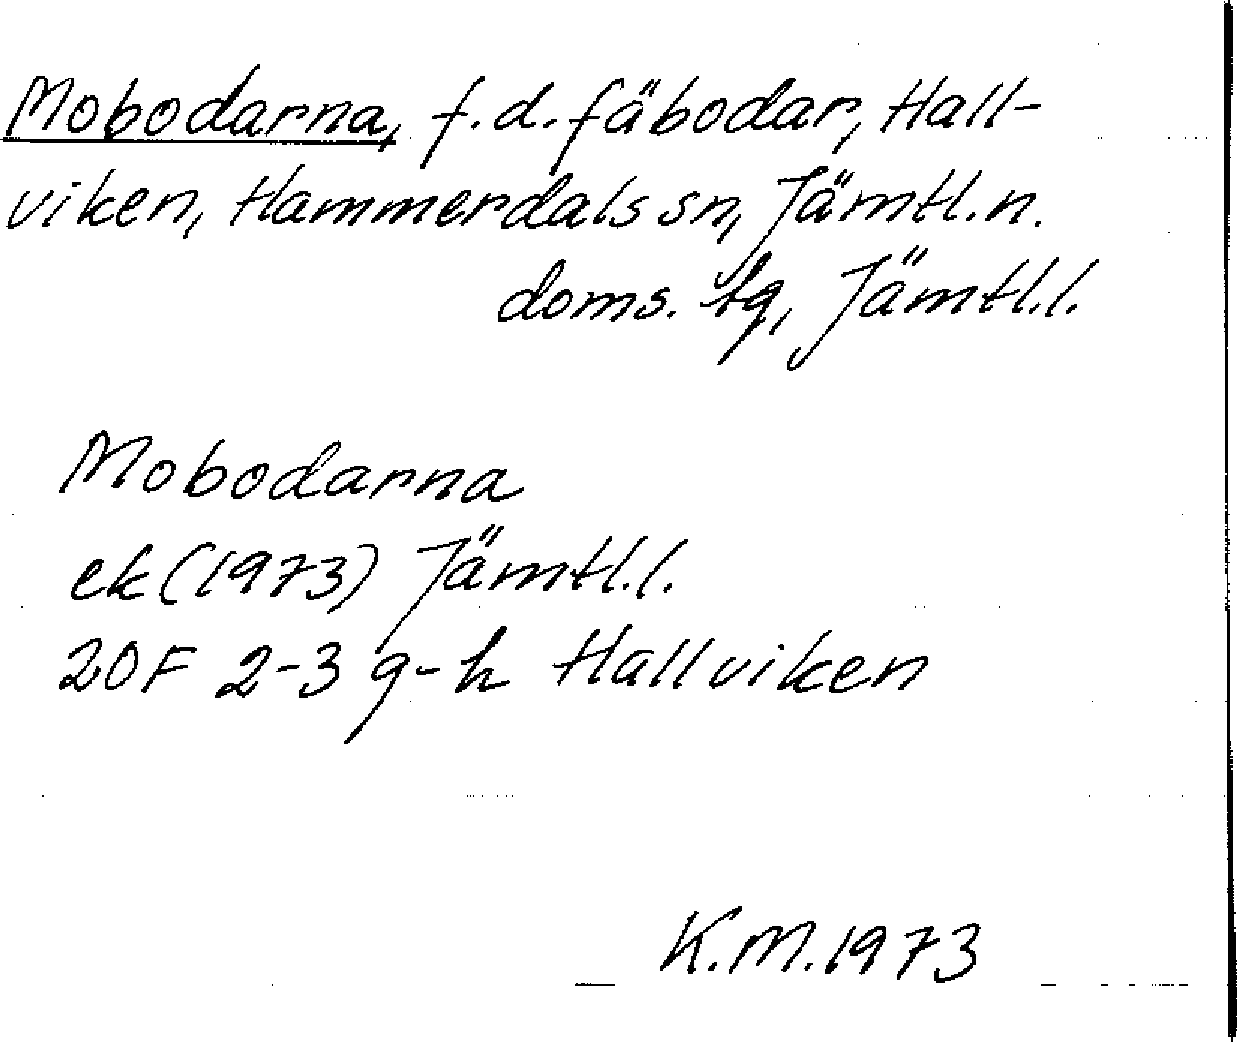 Mobodarna, f.d. fäbodar, Hall-
viken, Hammerdals sn, Jämtl. n.
doms. tg, Jämtl.l.
Mobodarna
ek (1973) Jämtl.l.
20F 2-3 g-h Hallviken
K.M. 1973